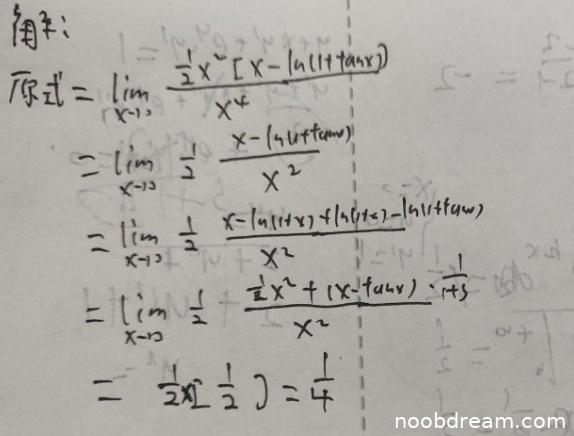 解:
原式 = lim x→0 \frac{\frac{1}{2}x²[x-ln(1+tanx)]}{x⁴}
= lim x→0 \frac{1}{2} \frac{x-ln(1+tanx)}{x²}
= lim x→0 \frac{1}{2} \frac{x-ln(1+x)+ln(1+x)-ln(1+tanx)}{x²}
= lim x→0 \frac{1}{2} \frac{\frac{1}{2}x²+(x-tanx)·\frac{1}{1+ξ}}{x²}
= \frac{1}{2}×[\frac{1}{2}] = \frac{1}{4}
noobdream.com